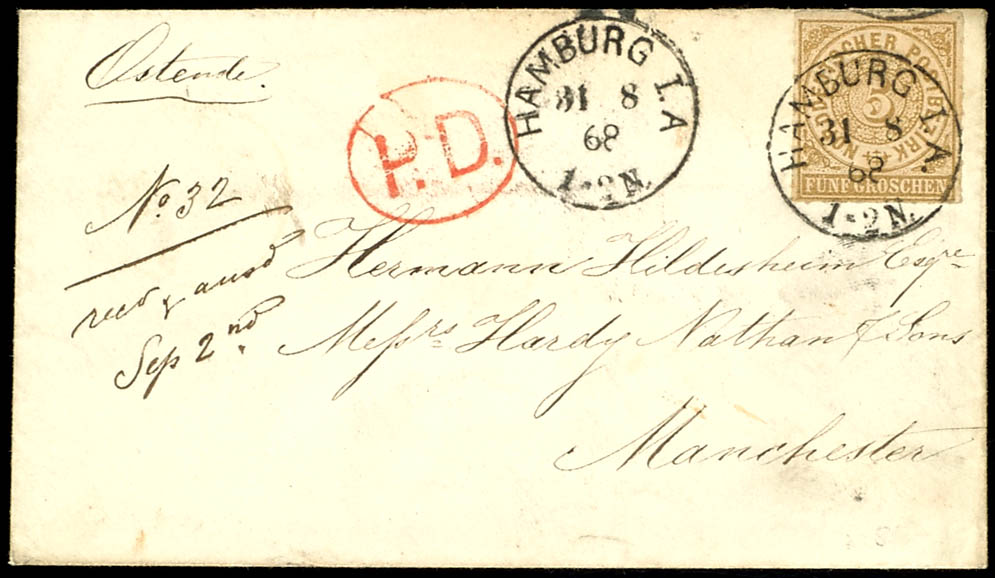 Ostende.
P.D.
HAMBURG I.A
31 8
68
1-2N.
NORDDEUTSCHER POSTBEZIRK
5
FÜNF GROSCHEN
HAMBURG I.A.
31 8
68
1-2N.
No. 32
recd & ansd
Sep 2nd.
Hermann Hildesheim Esqre
Messrs Hardy Nathan & Sons
Manchester